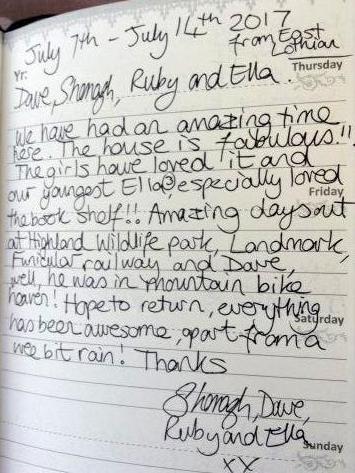 July 7th - July 14th 2017
from East
Lothian
Yr:
Thursday
Dave, Shonagh, Ruby and Ella.
We have had an amazing time
here. The house is fabulous!!
The girls have loved it and
our youngest Ella especially loved
Friday
the book shelf!! Amazing days out
at Highland Wildlife park, Landmark,
Funicular railway and Dave,
well, he was in mountain bike
heaven! Hope to return, everything
Saturday
has been awesome, apart from a
wee bit rain! Thanks
Shonagh, Dave,
Ruby and Ella
Sunday
xx